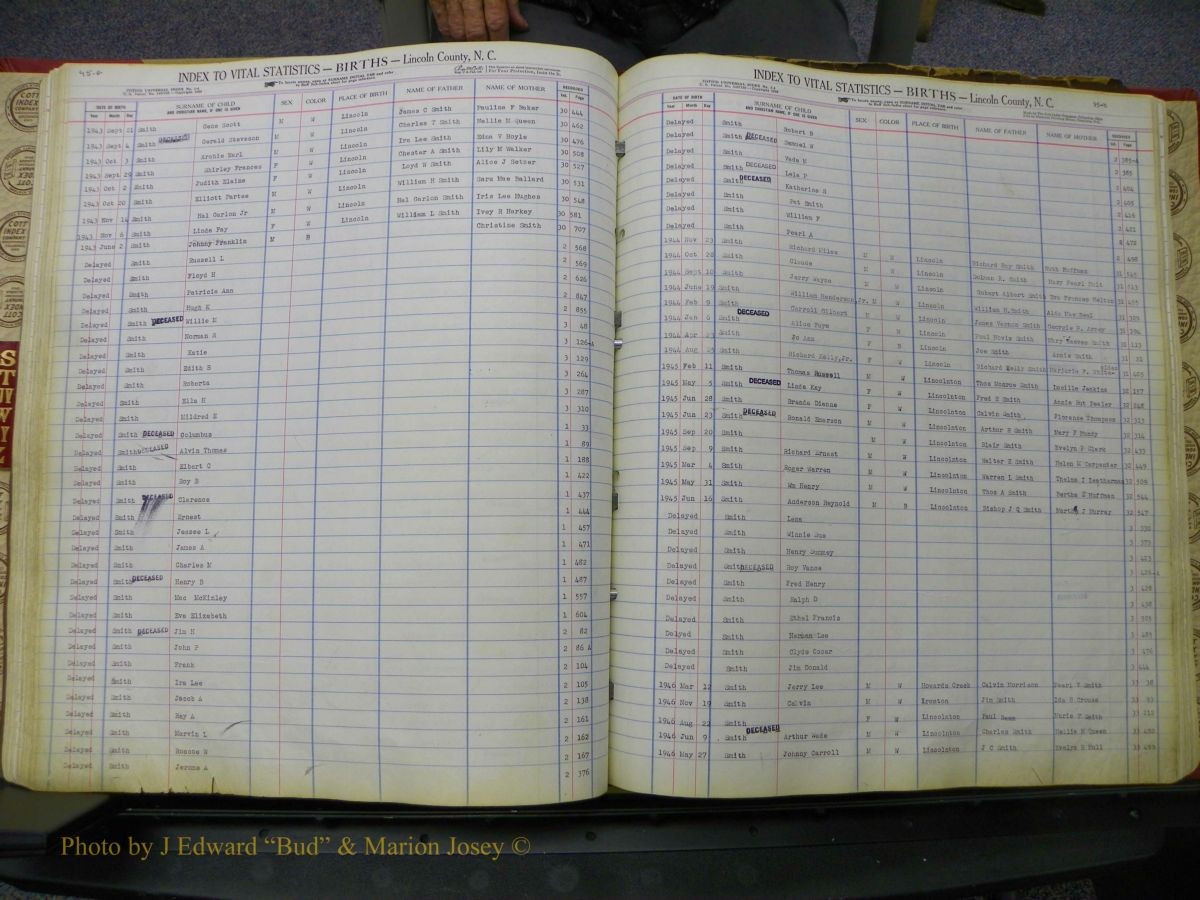 45-6
INDEX TO VITAL STATISTICS — BIRTHS — Lincoln County, N. C.
DATE OF BIRTH
Year Month Day
SURNAME OF CHILD
AND CHRISTIAN NAME, IF ONE IS GIVEN
SEX COLOR PLACE OF BIRTH NAME OF FATHER NAME OF MOTHER RECORDED
Vol. Page
1943 Sept 21 Smith Gene Scott M W Lincoln James C Smith Pauline F Baker 30 444
1943 Sept 4 Smith DECEASED Gerald Steveson M W Lincoln Charles T Smith Mallie M Queen 30 462
1943 Oct 3 Smith Archie Earl M W Lincoln Ira Lee Smith Edna V Hoyle 30 476
1943 Sept 29 Smith Shirley Frances F W Lincoln Chester A Smith Lily M Walker 30 508
1943 Oct 2 Smith Judith Elaine F W Lincoln Loyd W Smith Alice J Setzer 30 527
1943 Oct 20 Smith Elliott Partee M W Lincoln William H Smith Sara Mae Ballard 30 531
1943 Nov 14 Smith Hal Carlon Jr M W Lincoln Hal Carlon Smith Iris Lee Hughes 30 548
1943 Nov 6 Smith Linda Fay F W Lincoln William L Smith Ivey R Harkey 30 581
1943 June 2 Smith Johnny Franklin M B Christine Smith 30 707
Delayed Smith Russell L 2 568
Delayed Smith Floyd H 2 569
Delayed Smith Patricia Ann 2 626
Delayed Smith Hugh K 2 847
Delayed Smith DECEASED Willie M 2 855
Delayed Smith Norman A 3 48
Delayed Smith Katie 3 126-A
Delayed Smith Edith S 3 129
Delayed Smith Roberta 3 264
Delayed Smith Ella H 3 287
Delayed Smith Mildred E 3 310
Delayed Smith DECEASED Columbus 1 33
Delayed Smith DECEASED Alvin Thomas 1 89
Delayed Smith Elbert C 1 188
Delayed Smith Roy B 1 422
Delayed Smith DECEASED Clarence 1 437
Delayed Smith Ernest 1 444
Delayed Smith Jessee L 1 457
Delayed Smith James A 1 471
Delayed Smith Charles M 1 482
Delayed Smith DECEASED Henry B 1 487
Delayed Smith Mac McKinley 1 557
Delayed Smith Eva Elizabeth 1 604
Delayed Smith DECEASED Jim H 2 82
Delayed Smith John P 2 86 A
Delayed Smith Frank 2 104
Delayed Smith Ira Lee 2 105
Delayed Smith Jacob A 2 138
Delayed Smith Ray A 2 161
Delayed Smith Marvin L 2 162
Delayed Smith Roscoe W 2 167
Delayed Smith Jerome A 2 376
INDEX TO VITAL STATISTICS — BIRTHS — Lincoln County, N. C.
DATE OF BIRTH
Year Month Day
SURNAME OF CHILD
AND CHRISTIAN NAME, IF ONE IS GIVEN
SEX COLOR PLACE OF BIRTH NAME OF FATHER NAME OF MOTHER RECORDED
Vol. Page
Delayed Smith Robert B 2 385-A
Delayed Smith DECEASED Samuel W 2 385
Delayed Smith Vada M 2 404
Delayed Smith DECEASED Lela P 2 405
Delayed Smith DECEASED Katharine S 2 416
Delayed Smith Pat Smith 2 421
Delayed Smith William F 2 472
Delayed Smith Pearl A 2 498
1944 Nov 23 Smith Richard Miles M W Lincoln Richard Roy Smith Ruth Huffman 31
1944 Oct 28 Smith Claude M W Lincoln Dolman R. Smith Mary Pearl 31
1944 Sept 10 Smith Jerry Wayne M W Lincoln Hubert Albert Smith Eva Frances Melton 31
1944 June 19 Smith William Henderson, Jr. M W Lincoln William H. Smith Alda Mae Beal 31
1944 Feb 9 Smith DECEASED Carroll Gilbert M W Lincoln James Vernon Smith Georgia S. 31 394
1944 Jan 6 Smith Alice Faye F W Lincoln Paul Novis Smith Mary Reeves Smith 31 113
1944 Apr 23 Smith Jo Ann F B Lincoln Joe Smith Annie Smith 31 21
1944 Aug 25 Smith Richard Kelly, Jr. M W Lincoln Richard Kelly Smith Marjorie F. 31 405
1945 Feb 11 Smith Thomas Russell M W Lincolnton Thos Monroe Smith Lucille Jenkins 32 157
1945 May 5 Smith DECEASED Linda Kay F W Lincolnton Fred S Smith Annie Hut Peeler 32 248
1945 Jun 28 Smith Brenda Dianne F W Lincolnton Calvin Smith Florence Thompson 32 313
1945 Jun 23 Smith DECEASED Ronald Emerson M W Lincolnton Arthur H Smith Mary F Mundy 32 314
1945 Sep 20 Smith M W Lincolnton Blair Smith Evelyn P Clark 32 433
1945 Sep 9 Smith Richard Ernest M W Lincolnton Walter E Smith Helen M Carpenter 32 449
1945 Mar 4 Smith Roger Warren M W Lincolnton Warren L Smith Thelma I Leatherman 32 509
1945 May 31 Smith Wm Henry M W Lincolnton Thos A Smith Bertha J Huffman 32 544
1945 Jun 16 Smith Anderson Reynold M B Lincolnton Bishop J Q Smith Martha J Murray 32 547
Delayed Smith Lena 3
Delayed Smith Winnie Sue 3 373
Delayed Smith Henry Summey 3 423
Delayed Smith DECEASED Roy Vance 3
Delayed Smith Fred Henry 3 429
Delayed Smith Ralph D 3 438
Delayed Smith Ethel Francis 3
Delayed Smith Herman Lee 3
Delayed Smith Clyde Oscar 3 476
Delayed Smith Jim Donald 3 444
1946 Mar 12 Smith Jerry Lee M W Howards Creek Calvin Morrison Pearl V Smith 33 38
1946 Nov 19 Smith Calvin M W Ironton Jim Smith Ida B Crouse 33 83
1946 Aug 22 Smith F W Lincolnton Paul Dean Marie F Smith 33 212
1946 Jun 9 Smith DECEASED Arthur Wade M W Lincolnton Charles Smith Mallie H Queen 33 450
1946 May 27 Smith Johnny Carroll M W Lincolnton J C Smith Evelyn R Hull 33
COTT INDEX COMPANY
Photo by J Edward “Bud” & Marion Josey ©